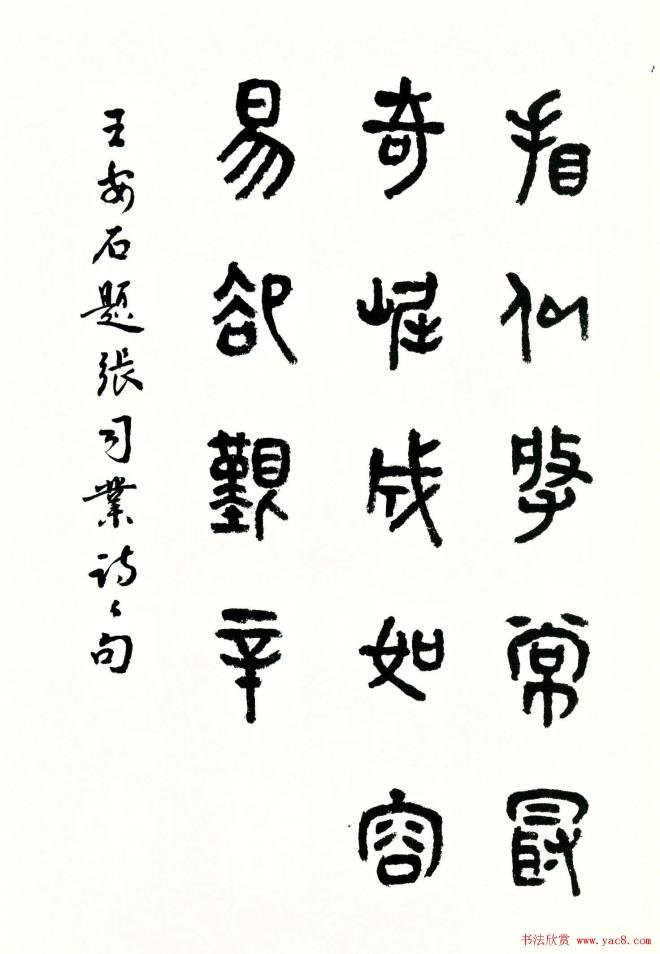 看似尋常最
奇崛成如容
易卻艱辛
王安石題張司業詩之句
书法欣赏 www.yac8.com